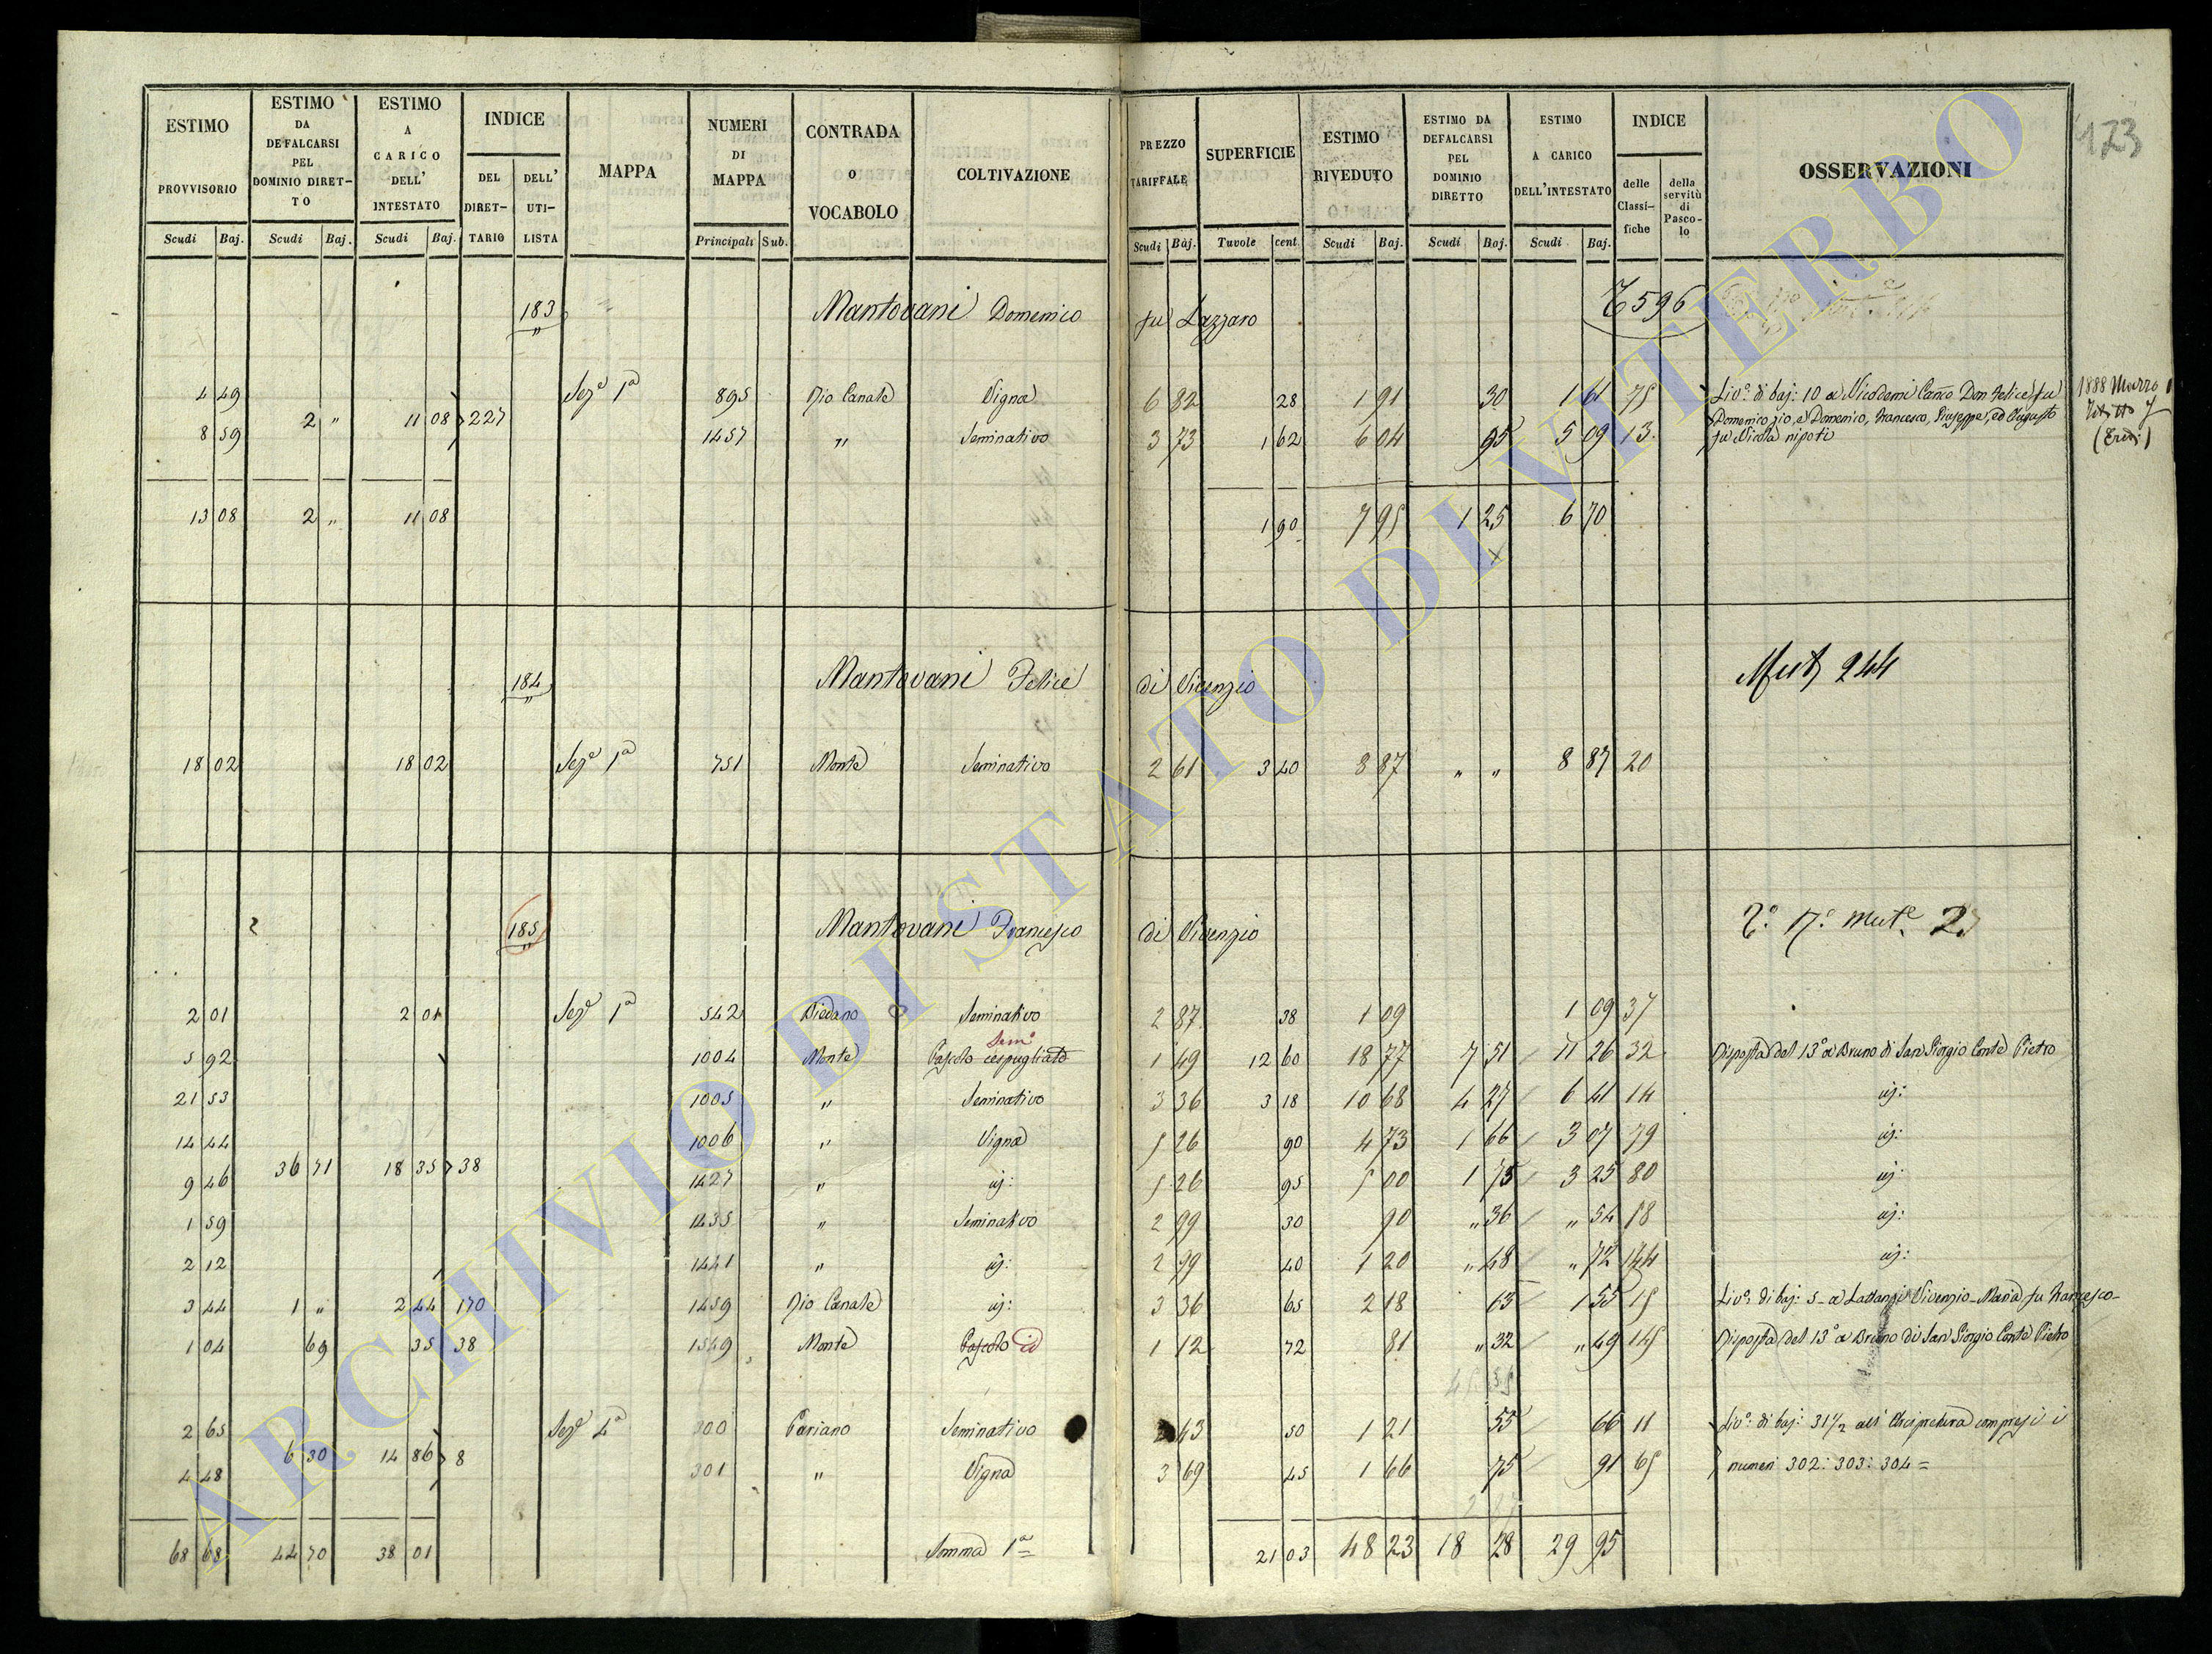 ESTIMO PROVVISORIO Scudi Baj. ESTIMO DA DEFALCARSI PEL DOMINIO DIRET-TO Scudi Baj. ESTIMO A CARICO DELL' INTESTATO Scudi Baj. INDICE DEL DIRET-TARIO DELL' UTI-LISTA MAPPA NUMERI DI MAPPA Principali Sub. CONTRADA O VOCABOLO COLTIVAZIONE PREZZO TARIFFALE Scudi Baj. SUPERFICIE Tavole cent ESTIMO RIVEDUTO Scudi Baj. ESTIMO DA DEFALCARSI PEL DOMINIO DIRETTO Scudi Baj. ESTIMO A CARICO DELL'INTESTATO Scudi Baj. INDICE delle Classi-fiche della servitù di Pasco-lo OSSERVAZIONI
173
183 Mantovani Domenico fu Lazzaro 596
4 49 Sezе 1ª 895 Rio Canale Vigna 6 82 28 1 91 30 1 61 75 Livº: di baj: 10 a Nicodemi Canco Don Felice fu 1888 Marzo
2 " 11 08 227 Domenico zio, e Domenico, Francesco, Giuseppe, ed Augusto
8 59 1457 " Seminativo 3 73 1 62 6 04 95 5 09 13 fu Nicola nipoti (Eredi)
13 08 2 " 11 08 1 90 7 95 1 25 6 70
184 Mantovani Felice di Vicenzio Mut 244
18 02 18 02 Sezе 1ª 751 Monte Seminativo 2 61 3 40 8 87 " " 8 87 20
185 Mantovani Francesco di Vicenzio Mut.
2 01 2 01 Sezе 1ª 542 Biedano Seminativo 2 87 38 1 09 1 09 37
5 92 1004 Monte Pascolo cespugliato Sem 1 49 12 60 18 77 7 51 11 26 32 Risposta del 13º a Bruno di San Giorgio Conte Pietro
21 53 1005 " Seminativo 3 36 3 18 10 68 4 27 6 41 14 id:
14 44 1006 " Vigna 5 26 90 4 73 1 66 3 07 79 id:
36 71 18 35 38
9 46 1427 " id: 5 26 95 5 00 1 75 3 25 80 id:
1 59 1435 " Seminativo 2 99 30 90 " 36 " 54 18 id:
2 12 1441 " id: 2 99 40 1 20 " 48 " 72 144 id:
3 44 1 " 2 44 170 1459 Rio Canale id: 3 36 65 2 18 63 1 55 15 Livº: di baj: 5 a Lattanzi Vicenzio Maria fu Francesco
1 04 69 35 38 1549 Monte Pascolo id 1 12 72 81 " 32 " 49 145 Risposta del 13º a Bruno di San Giorgio Conte Pietro
2 65 Sezе 4ª 300 Cariano Seminativo 2 43 50 1 21 55 66 11 Livº: di baj: 31½ all' Arcipretura compresi i
6 30 14 86 8
4 48 301 " Vigna 3 69 45 1 66 75 91 65 numeri 302: 303: 304=
68 68 44 70 38 01 Somma 1ª 21 03 48 23 18 28 29 95
ARCHIVIO DI STATO DI VITERBO